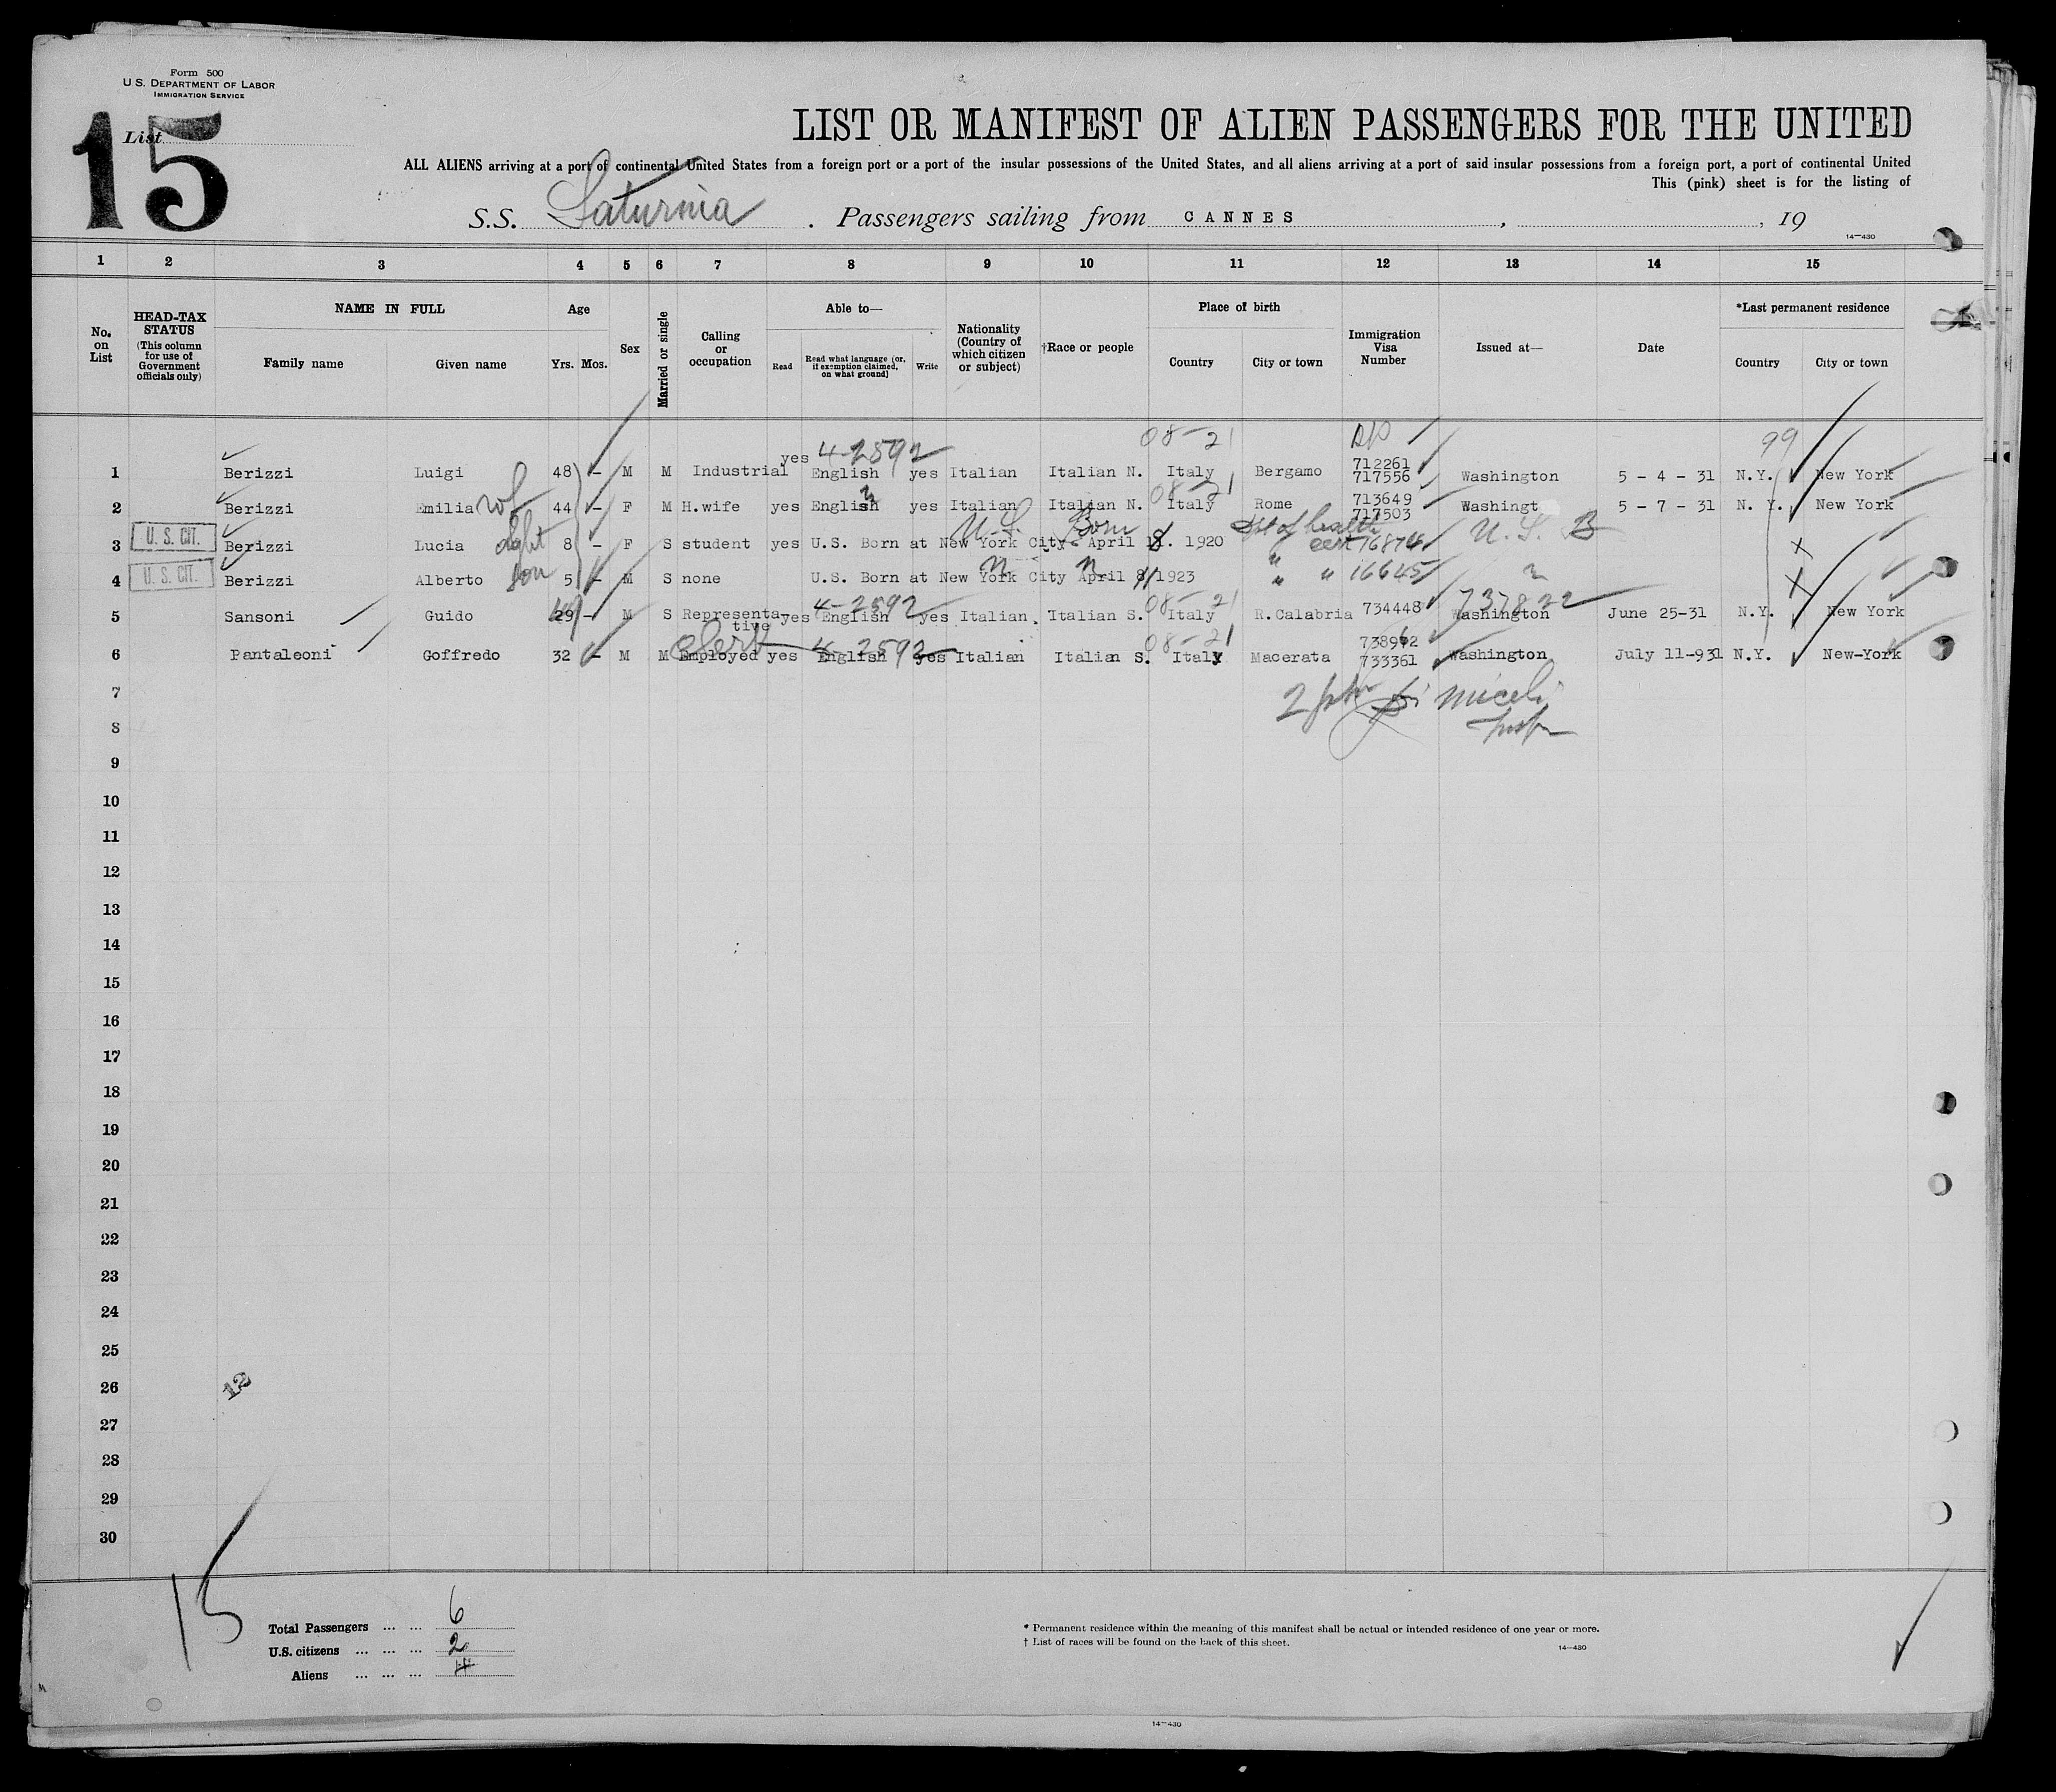 Form 500
U.S. DEPARTMENT OF LABOR
IMMIGRATION SERVICE
List
15
LIST OR MANIFEST OF ALIEN PASSENGERS FOR THE UNITED
ALL ALIENS arriving at a port of continental United States from a foreign port or a port of the insular possessions of the United States, and all aliens arriving at a port of said insular possessions from a foreign port, a port of continental United
This (pink) sheet is for the listing of
S.S. Saturnia. Passengers sailing from CANNES, , 19
14—430
1 2 3 4 5 6 7 8 9 10 11 12 13 14 15
No. on List
HEAD-TAX STATUS (This column for use of Government officials only)
NAME IN FULL
Family name Given name
Age
Yrs. Mos.
Sex
Married or single
Calling or occupation
Able to—
Read Read what language (or, if exemption claimed, on what ground) Write
Nationality (Country of which citizen or subject)
†Race or people
Place of birth
Country City or town
Immigration Visa Number
Issued at—
Date
*Last permanent residence
Country City or town
4-2592 08-21 99
1 Berizzi Luigi 48 - M M Industrial yes English yes Italian Italian N. Italy Bergamo 712261 717556 Washington 5 - 4 - 31 N.Y. New York
08-21
2 Berizzi Emilia wf 44 - F M H.wife yes English yes Italian Italian N. Italy Rome 713649 717503 Washingt 5 - 7 - 31 N. Y. New York
U.S. Born Dpt of health U.S. B
U. S. CIT. 3 Berizzi Lucia dght 8 - F S student yes U.S. Born at New York City - April 18. 1920 cert
U. S. CIT. 4 Berizzi Alberto son 5 - M S none U.S. Born at New York City April 8 1923 " " 16645
4-2592 08-21 737822
5 Sansoni Guido 29 - M S Representative yes English yes Italian Italian S. Italy R.Calabria 734448 Washington June 25-31 N.Y. New York
Clerk 4-2592 08-21
6 Pantaleoni Goffredo 32 - M M Employed yes English yes Italian Italian S. Italy Macerata 733361 Washington July 11-931 N.Y. New-York
7
8
9
10
11
12
13
14
15
16
17
18
19
20
21
22
23
24
25
26
12
27
28
29
30
15
Total Passengers ... ... 6
U.S. citizens ... ... ... 2
Aliens ... ... ... 4
* Permanent residence within the meaning of this manifest shall be actual or intended residence of one year or more.
† List of races will be found on the back of this sheet.
14—430
14—430